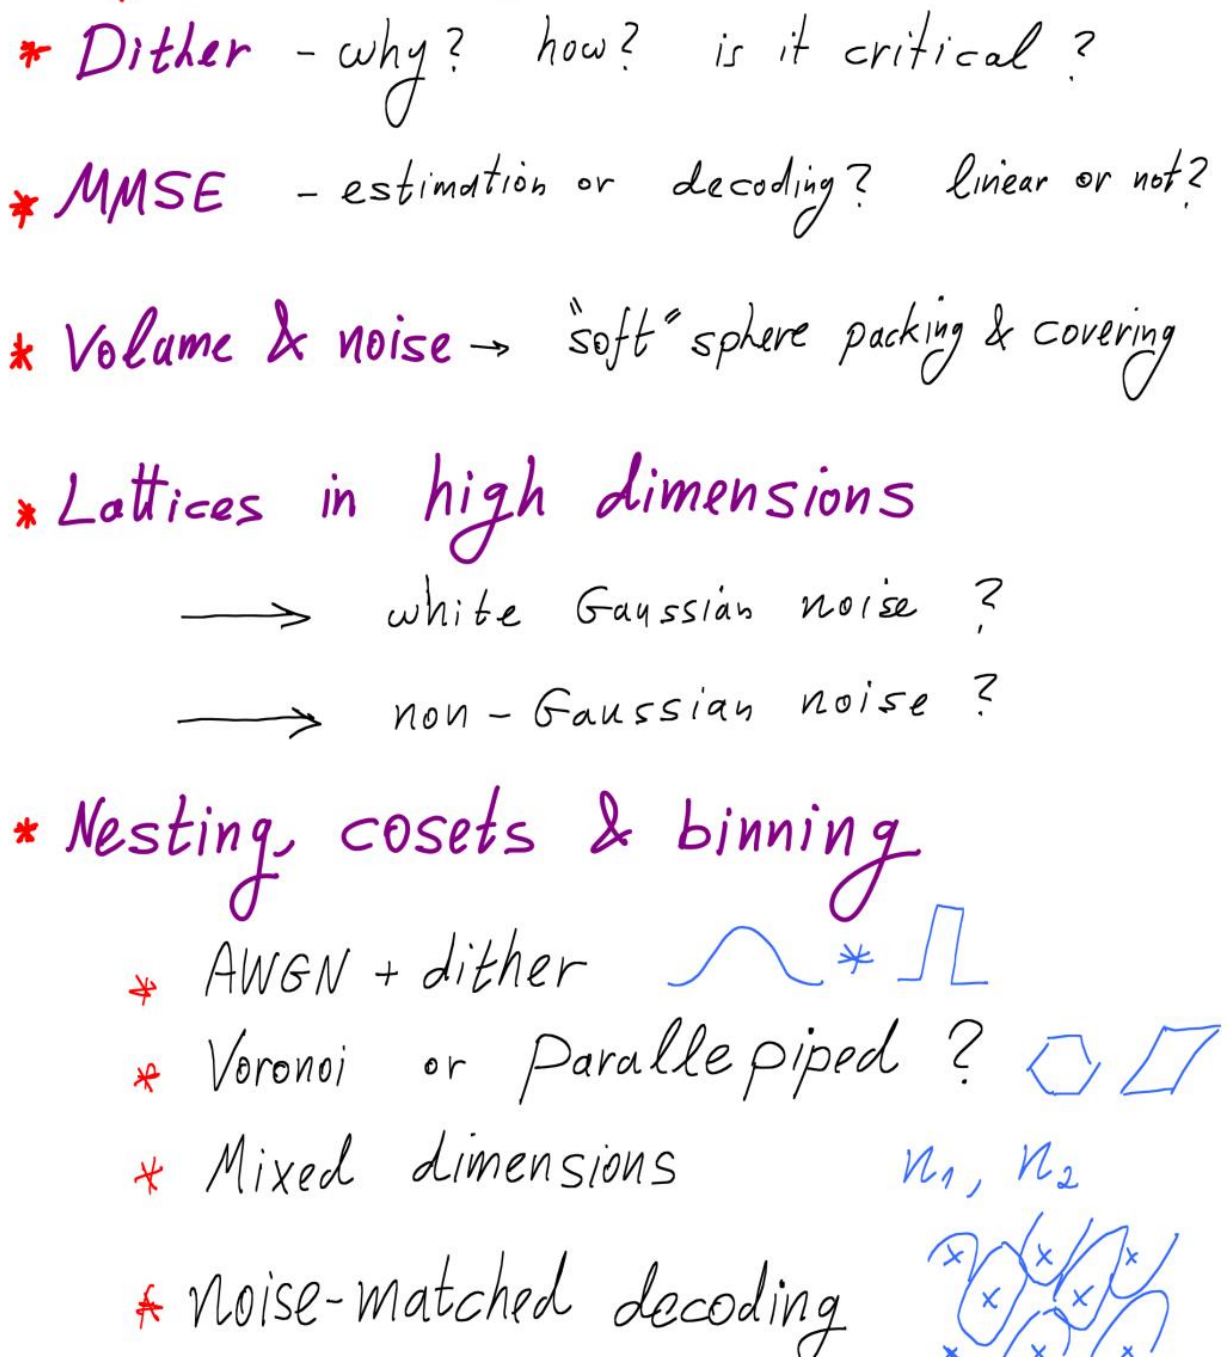 * Dither - why? how? is it critical?
* MMSE - estimation or decoding? linear or not?
* Volume & noise → "soft" sphere packing & covering
* Lattices in high dimensions
→ white Gaussian noise ?
→ non-Gaussian noise ?
* Nesting, cosets & binning
* AWGN + dither *
* Voronoi or Parallepiped ?
* Mixed dimensions n₁, n₂
* noise-matched decoding